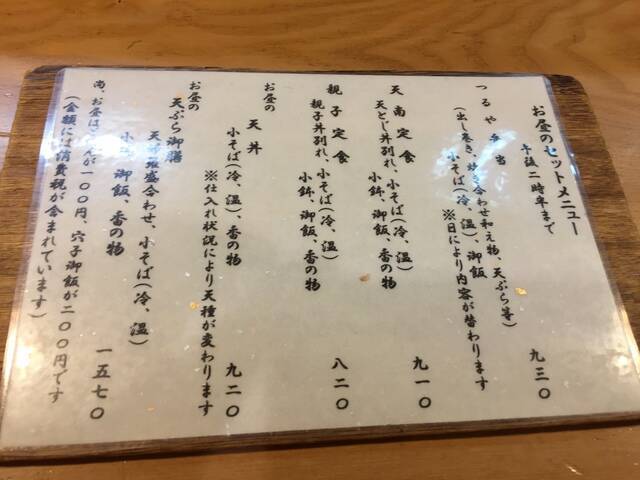 お昼のセットメニュー
午後二時半まで
つるや弁当 九三〇
(出し巻き、炊き合わせ和え物、天ぷら等)
小そば(冷、温)、御飯
※日により内容が替わります
天南定食 九一〇
天とじ丼別れ、小そば(冷、温)
小鉢、御飯、香の物
親子定食 八二〇
親子丼別れ、小そば(冷、温)
小鉢、御飯、香の物
お昼の
天丼 九二〇
小そば(冷、温)、香の物
※仕入れ状況により天種が変わります
お昼の
天ぷら御膳 一五七〇
天ぷら盛合わせ、小そば(冷、温)
小鉢、御飯、香の物
尚、お昼はごはんが一〇〇円、穴子御飯が二〇〇円です
(金額には消費税が含まれています)